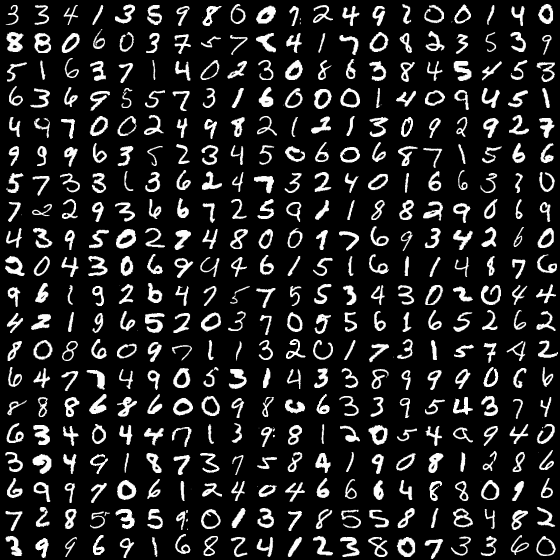 3 3 4 1 3 5 9 8 0 0 9 2 4 9 2 0 0 1 4 0
8 8 0 6 0 3 7 5 7 4 1 7 0 8 2 3 5 3 9
5 1 6 3 7 1 4 0 2 3 0 8 6 3 8 4 5 4 5 3
6 3 6 9 5 5 7 3 1 6 0 0 0 1 4 0 9 4 5 1
4 9 7 0 0 2 4 9 8 2 1 2 1 3 0 9 2 9 2 7
9 9 9 6 3 5 2 3 4 5 0 6 0 6 8 7 1 5 6 6
5 7 3 3 3 6 2 4 7 3 2 4 0 1 6 6 3 0
7 2 2 9 3 6 6 7 2 5 9 1 1 8 8 2 9 0 6 9
4 3 9 5 0 2 7 4 8 0 0 1 7 6 9 3 4 2 6 0
2 0 4 3 0 6 9 9 4 6 1 5 1 6 1 1 4 8 7 6
9 6 1 9 2 6 4 7 5 7 5 5 3 4 3 0 2 0 4 4
4 2 1 9 6 5 2 0 3 7 0 5 5 6 1 6 5 2 6 2
8 0 8 6 0 9 7 1 1 3 2 0 1 7 3 1 5 7 4 2
6 4 7 7 4 9 0 5 3 1 4 3 3 8 9 9 9 0 6 6
8 8 8 6 8 6 0 0 9 8 0 6 3 3 9 5 4 3 7 4
6 3 4 0 4 4 7 1 3 9 8 1 2 0 5 4 9 9 4 0
3 9 4 9 1 8 7 3 7 5 8 4 1 9 0 8 1 2 8 6
6 9 9 7 0 6 1 2 4 0 4 6 6 6 4 8 8 0 9 6
7 2 8 5 3 5 9 0 1 3 7 8 5 5 8 1 8 4 8 2
3 9 9 6 9 1 6 8 2 4 1 2 3 8 0 7 3 3 6 0